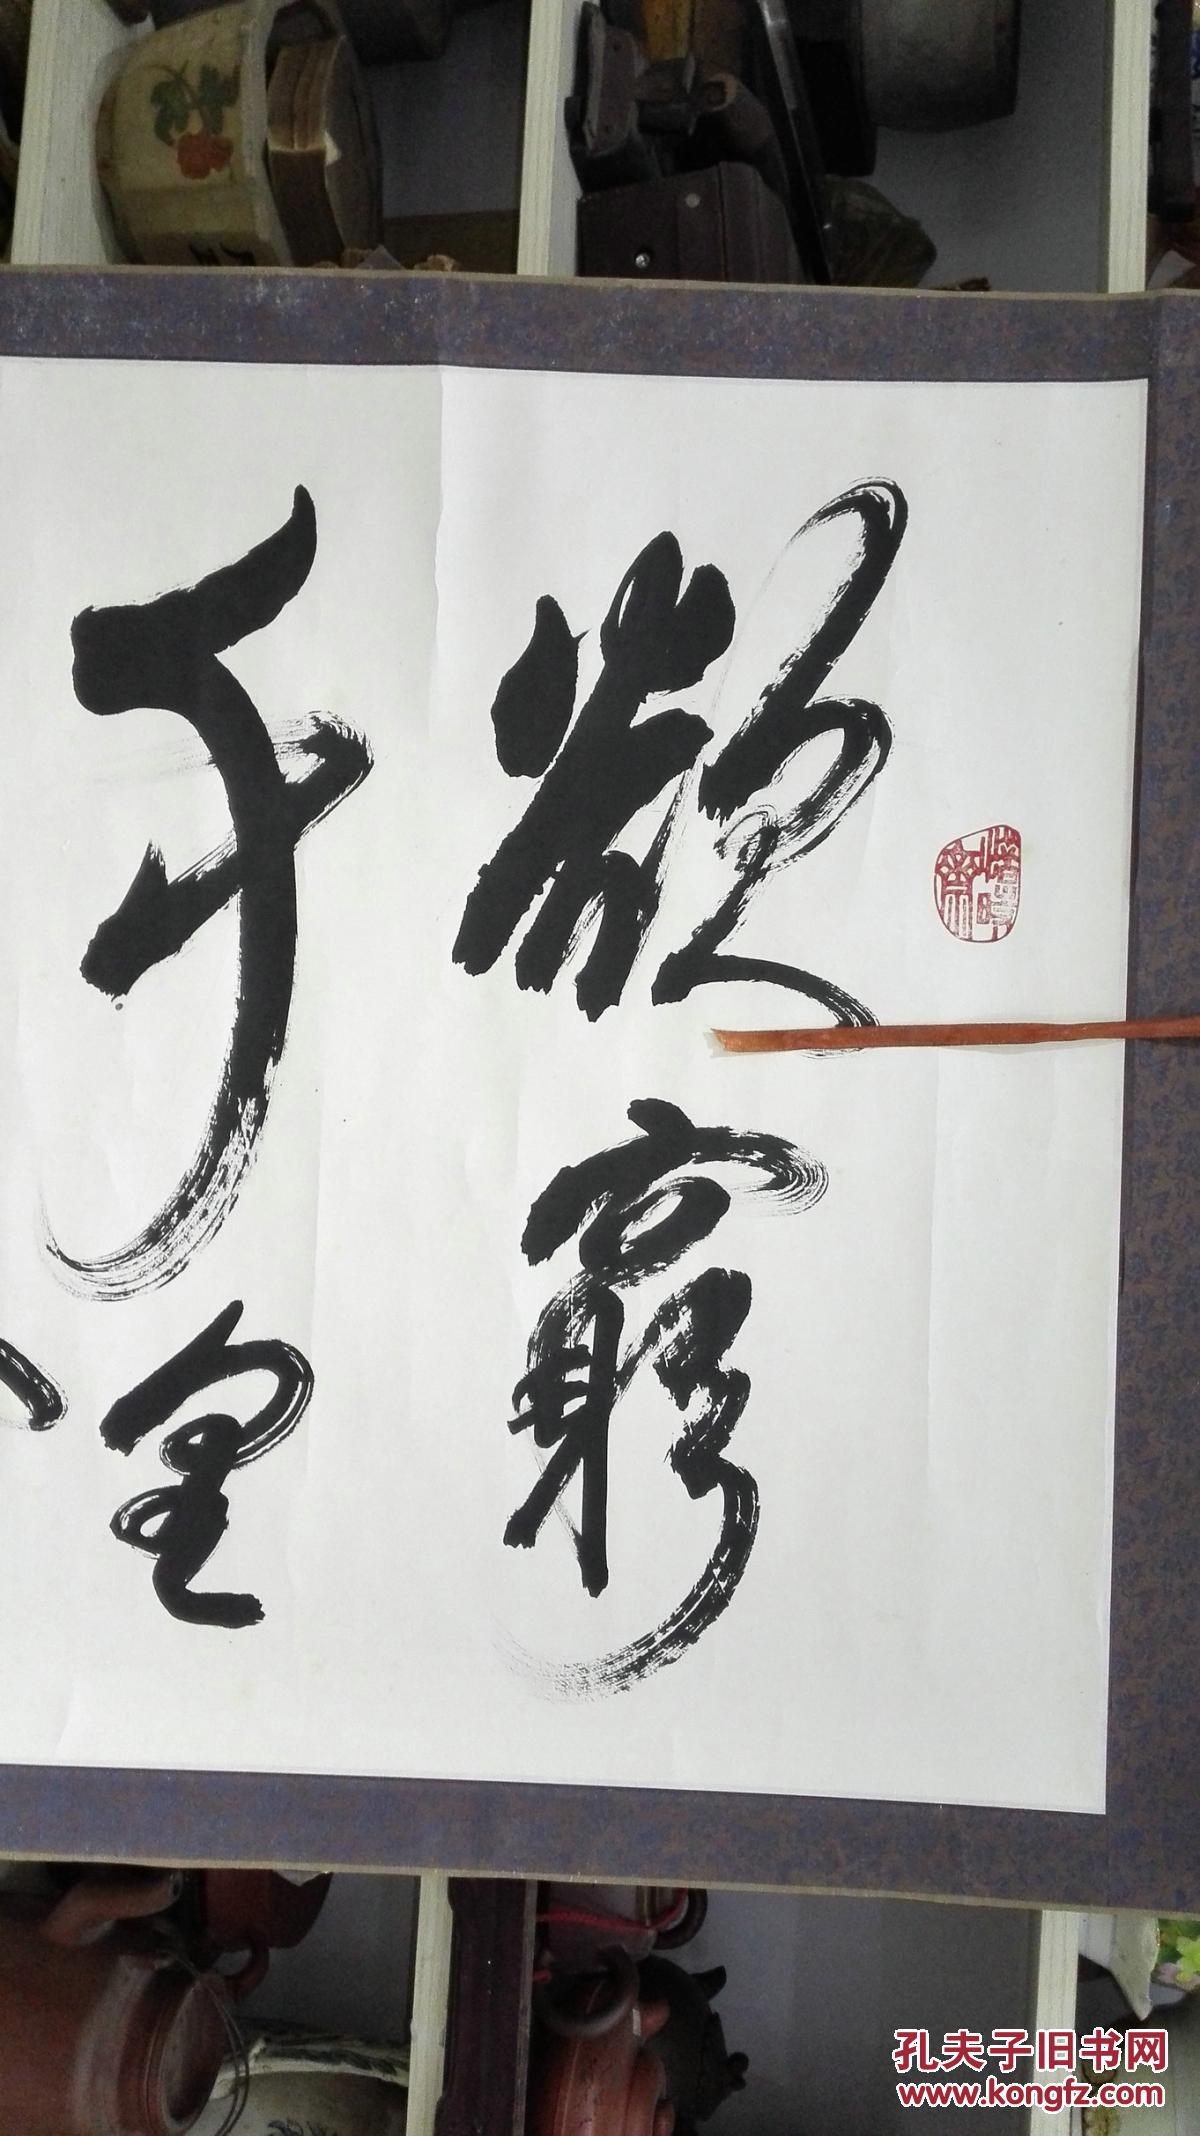 欲窮
千里
孔夫子旧书网
www.kongfz.com